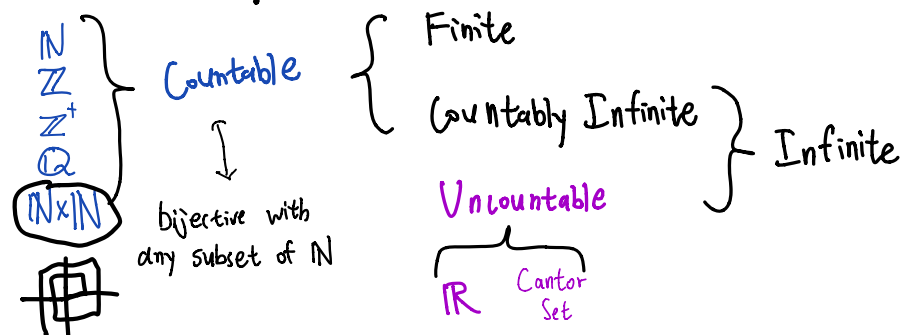 ℕ
ℤ
ℤ⁺
ℚ
ℕ×ℕ
Countable
bijective with
any subset of ℕ
Finite
Countably Infinite
Infinite
Uncountable
ℝ
Cantor
Set